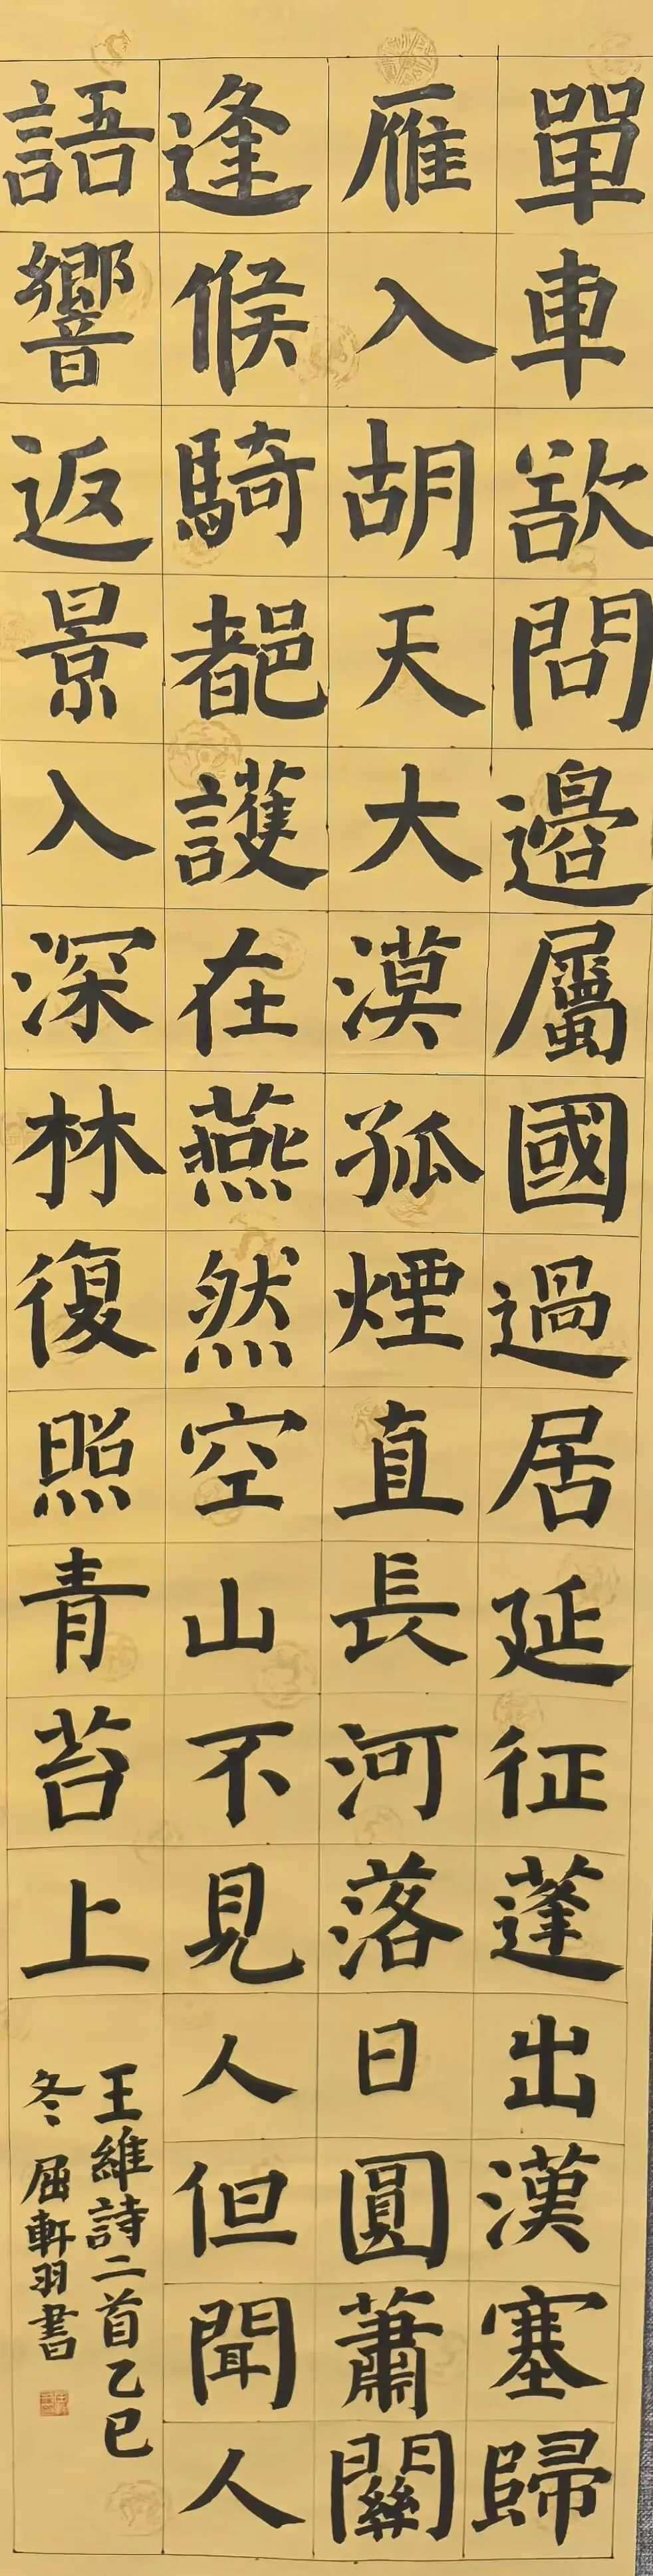 單車欲問邊屬國過居延征蓬出漢塞歸
雁入胡天大漠孤煙直長河落日圓蕭關
逢候騎都護在燕然空山不見人但聞人
語響返景入深林復照青苔上
王維詩二首乙巳
冬屈軒羽書